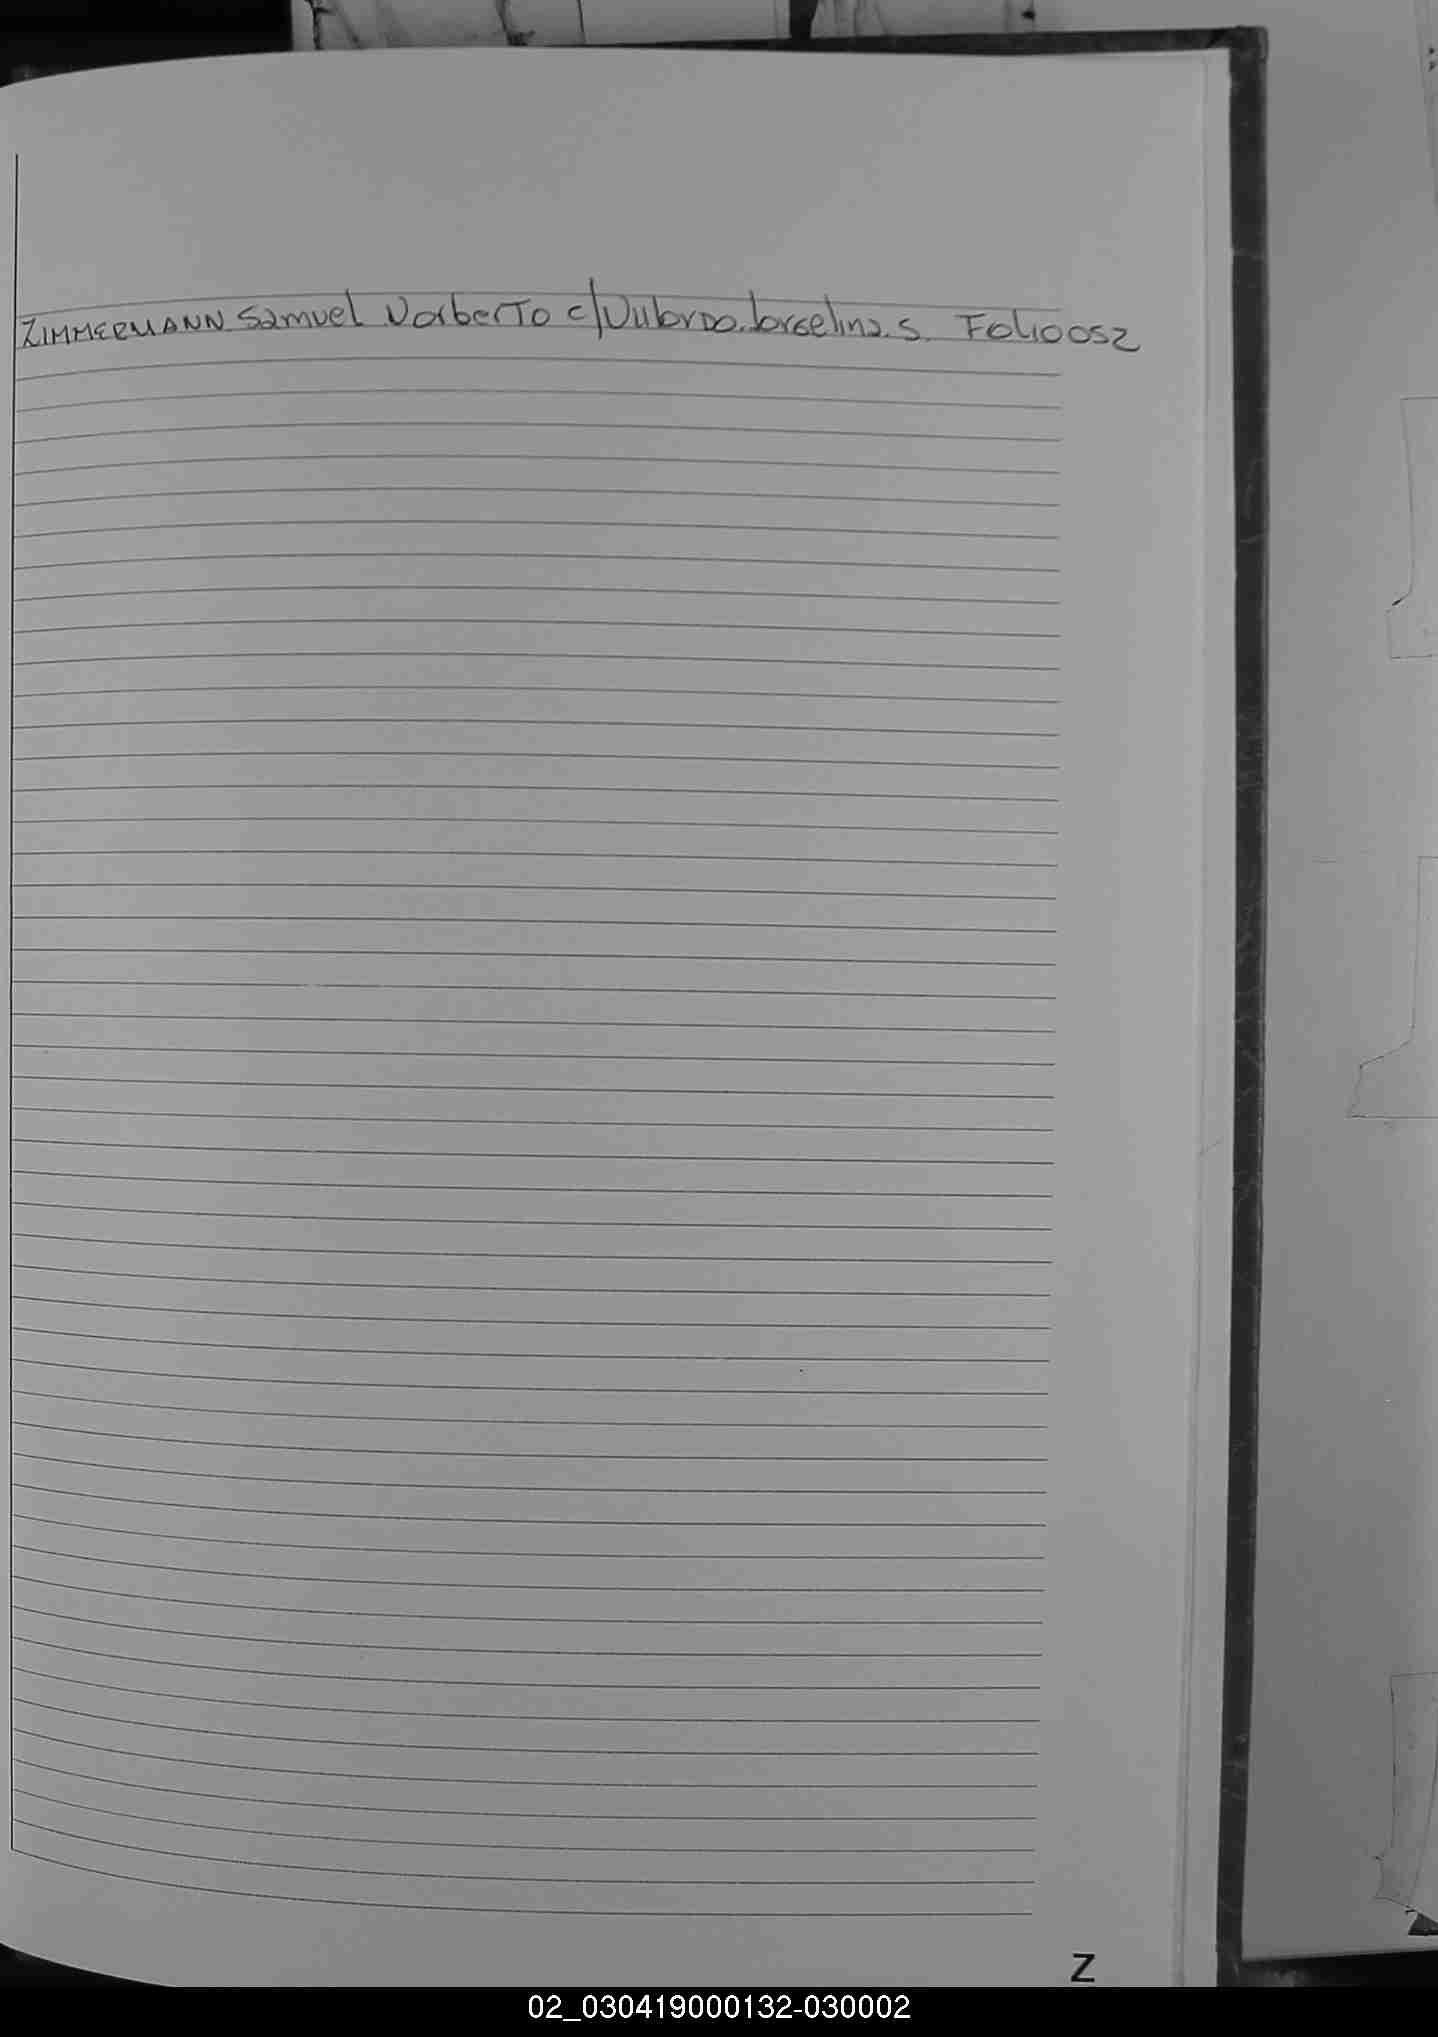 ZIMMERMANN Samuel Norberto c/ Jorcelina S. Folio 052
Z
02_030419000132-030002